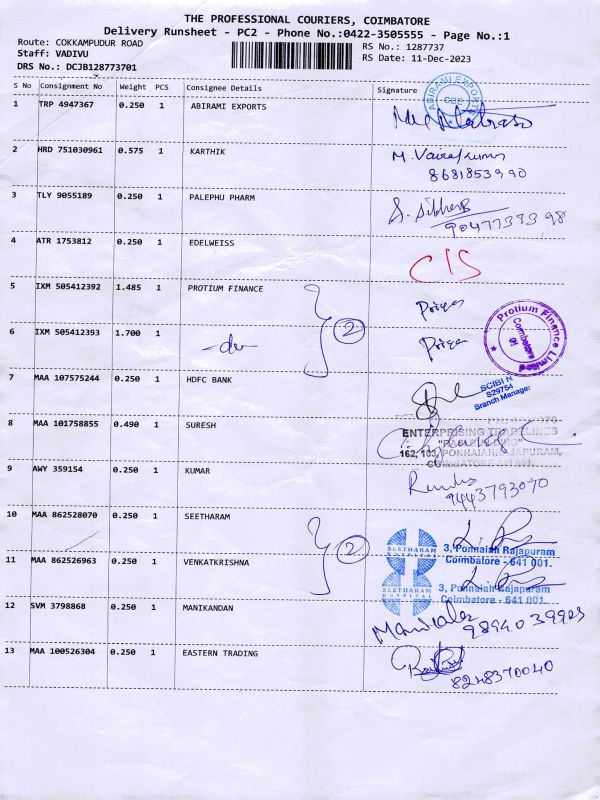 THE PROFESSIONAL COURIERS, COIMBATORE
Delivery Runsheet - PC2 - Phone No.:0422-3505555 - Page No.:1
Route: COKKAMPUDUR ROAD
RS No.: 1287737
Staff: VADIVU
RS Date: 11-Dec-2023
DRS No.: DCJB128773701
S No Consignment No Weight PCS Consignee Details Signature
1 TRP 4947367 0.250 1 ABIRAMI EXPORTS
ABIRAMI EXPORTS CBE
2 HRD 751030961 0.575 1 KARTHIK M. Vairakumar
8681853990
3 TLY 9055189 0.250 1 PALEPHU PHARM S. Sibher
9047738398
4 ATR 1753812 0.250 1 EDELWEISS C/S
5 IXM 505412392 1.485 1 PROTIUM FINANCE Priya
2
Protium Finance Limited
Coimbatore
6 IXM 505412393 1.700 1 -do- Priya
7 MAA 107575244 0.250 1 HDFC BANK
SCIBI N
S29754
Branch Manager
8 MAA 101758855 0.490 1 SURESH
ENTERPRISING TRADELINES
162, 163, PONNAIAH RAJAPURAM,
COIMBATORE-641 001.
9 AWY 359154 0.250 1 KUMAR
9443793070
10 MAA 862528070 0.250 1 SEETHARAM
2
SEETHARAM HOSPITAL
3, Ponnaiah Rajapuram
Coimbatore - 641 001.
11 MAA 862526963 0.250 1 VENKATKRISHNA
SEETHARAM HOSPITAL
3, Ponnaiah Rajapuram
Coimbatore - 641 001.
12 SVM 3798868 0.250 1 MANIKANDAN
9894039923
13 MAA 100526304 0.250 1 EASTERN TRADING
8248370040